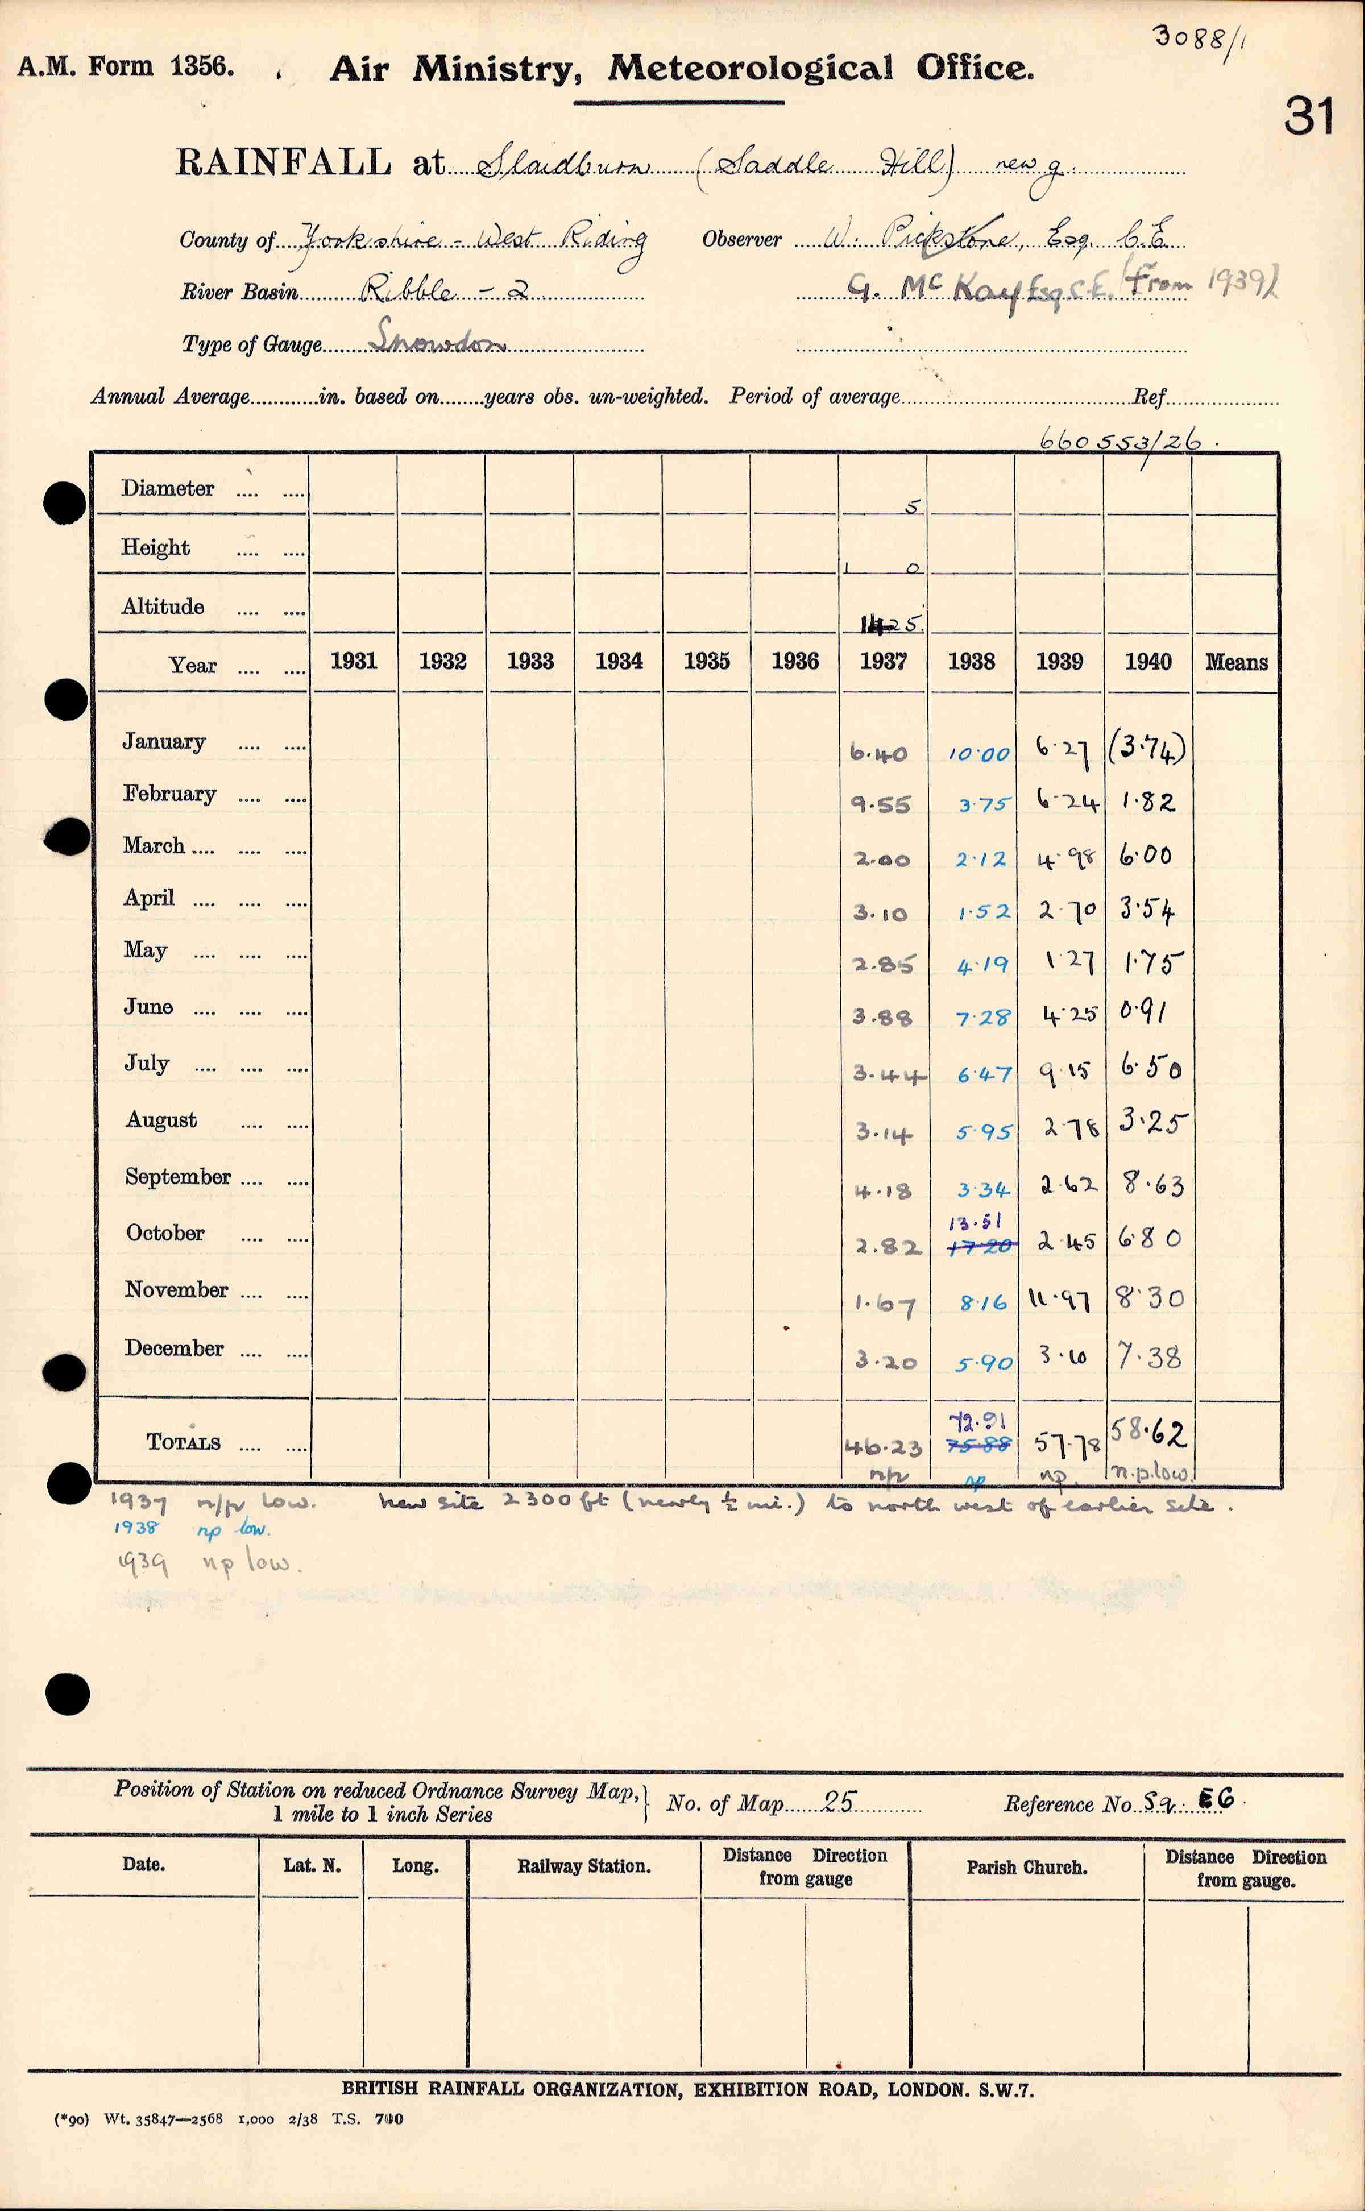 3088/1
A.M. Form 1356. Air Ministry, Meteorological Office.
31
RAINFALL at Slaidburn (Saddle Hill) new g.
County of Yorkshire - West Riding Observer W. Pickstone, Esq. C.E.
River Basin Ribble - 2 G. McKay Esq C.E. (From 1939)
Type of Gauge Snowdon
Annual Average............in. based on.......years obs. un-weighted. Period of average..........Ref..........
660553/26.
Diameter .... .... 5
Height .... .... 1 0
Altitude .... .... 1425
Year .... .... 1931 1932 1933 1934 1935 1936 1937 1938 1939 1940 Means
January .... .... 6.40 10.00 6.27 (3.74)
February .... .... 9.55 3.75 6.24 1.82
March .... .... .... 2.00 2.12 4.98 6.00
April .... .... .... 3.10 1.52 2.70 3.54
May .... .... .... 2.85 4.19 1.27 1.75
June .... .... .... 3.88 7.28 4.25 0.91
July .... .... .... 3.44 6.47 9.15 6.50
August .... .... 3.14 5.95 2.78 3.25
September .... .... 4.18 3.34 2.62 8.63
13.51
October .... .... 2.82 17.20 2.45 6.80
November .... .... 1.67 8.16 11.97 8.30
December .... .... 3.20 5.90 3.10 7.38
72.91
TOTALS .... .... 46.23 75.88 57.78 58.62
n/p np np n.p.low.
1937 n/p low. New site 2300 ft (nearly ½ mi.) to north west of earlier site.
1938 np low.
1939 np low.
Position of Station on reduced Ordnance Survey Map,} No. of Map 25 Reference No Sq. E6.
1 mile to 1 inch Series
Date. Lat. N. Long. Railway Station. Distance Direction from gauge Parish Church. Distance Direction from gauge.
BRITISH RAINFALL ORGANIZATION, EXHIBITION ROAD, LONDON. S.W.7.
(*90) Wt. 35847—2568 1,000 2/38 T.S. 700